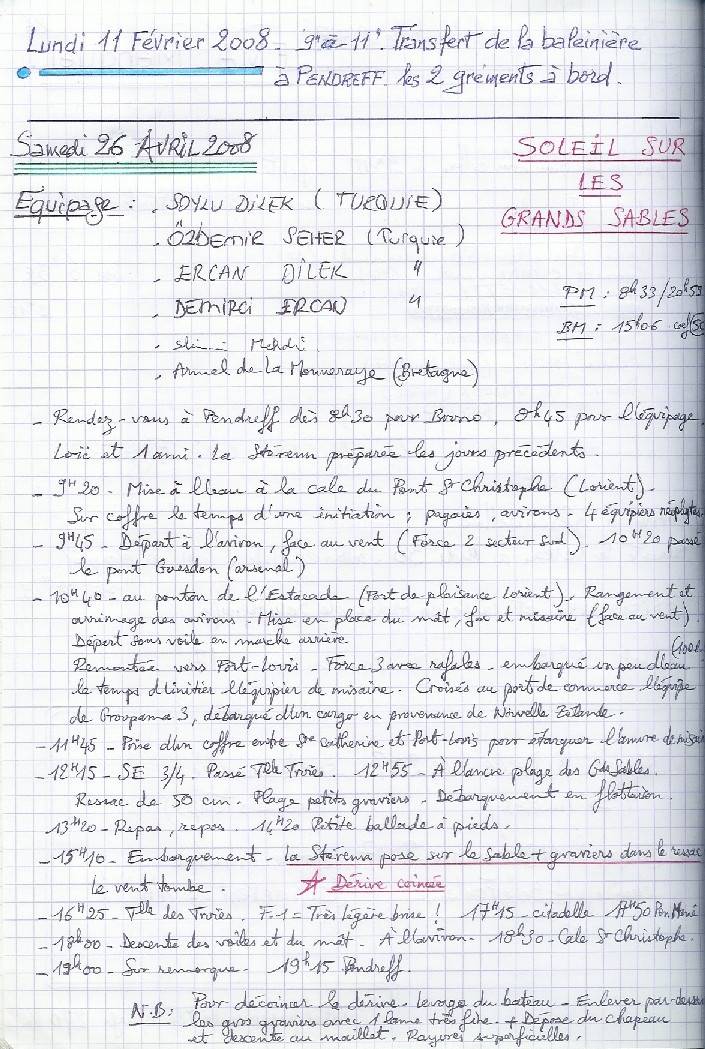 Lundi 11 Février 2008 - 9H à 11H. Transfert de la baleinière
à PENDREFF. les 2 gréments à bord.
Samedi 26 AVRIL 2008
SOLEIL SUR
LES
GRANDS SABLES
Equipage : . SOYLU DILEK (TURQUIE)
. ÖZDEMIR SEHER (Turquie)
. ERCAN DILEK "
. DEMIRCI ERCAN "
PM : 8h33/20h59
BM : 15h06 coef (50
. Mehdi.
. Armel de La Monneraye (Bretagne)
- Rendez-vous à Pendreff dès 8h30 pour Bruno, 8h45 pour l'équipage,
Loïc et 1 ami. La Stérenn préparée les jours précédents.
- 9H20 - Mise à l'eau à la cale du Pont St Christophe (Lorient).
Sur coffre le temps d'une initiation ; pagaies, avirons - 4 équipiers néophytes
- 9H45 - Départ à l'aviron, face au vent (Force 2 secteur Sud). 10H20 passé
le pont Gueydon (arsenal)
- 10H40 - au ponton de l'Estacade (Port de plaisance Lorient). Rangement et
arrimage des avirons - Mise en place du mât, foc et misaine (face au vent).
Départ sous voile en marche arrière
Remontée vers Port-Louis - Force 3 avec rafales - embarqué un peu d'eau
le temps d'initier l'équipier de misaine. Croisés au port de commerce l'équipe
de Groupama 3, débarqué d'un cargo en provenance de Nouvelle Zélande.
- 11H45 - Prise d'un coffre entre Ste Catherine et Port-Louis pour étarquer l'amure de misaine
- 12H15 - SE 3/4. Passé Tlle Truies. 12H55 - À l'ancre plage des Gds Sables.
Ressac de 50 cm. Plage petits graviers - Débarquement en flottaison.
13H20 - Repas, repos. 14H20 Petite ballade à pieds.
- 15H10 - Embarquement - La Stérenn pose sur le sable + graviers dans le ressac
le vent tombe. Dérive coincée
- 16H25 - Tlle des Truies. F.1 = Très légère brise ! 17H15 - citadelle 17H50 Pen Mané
- 18h00 - Descente des voiles et du mât. À l'aviron. 18h30 - Cale St Christophe.
- 19h00 - Sur remorque. 19H15 Pendreff.
N.B : Pour décoincer la dérive. Levage du bateau - Enlever par-dessus
les gros graviers avec 1 lame très fine. + Dépose du chapeau
et descente au maillet. Rayures superficielles.